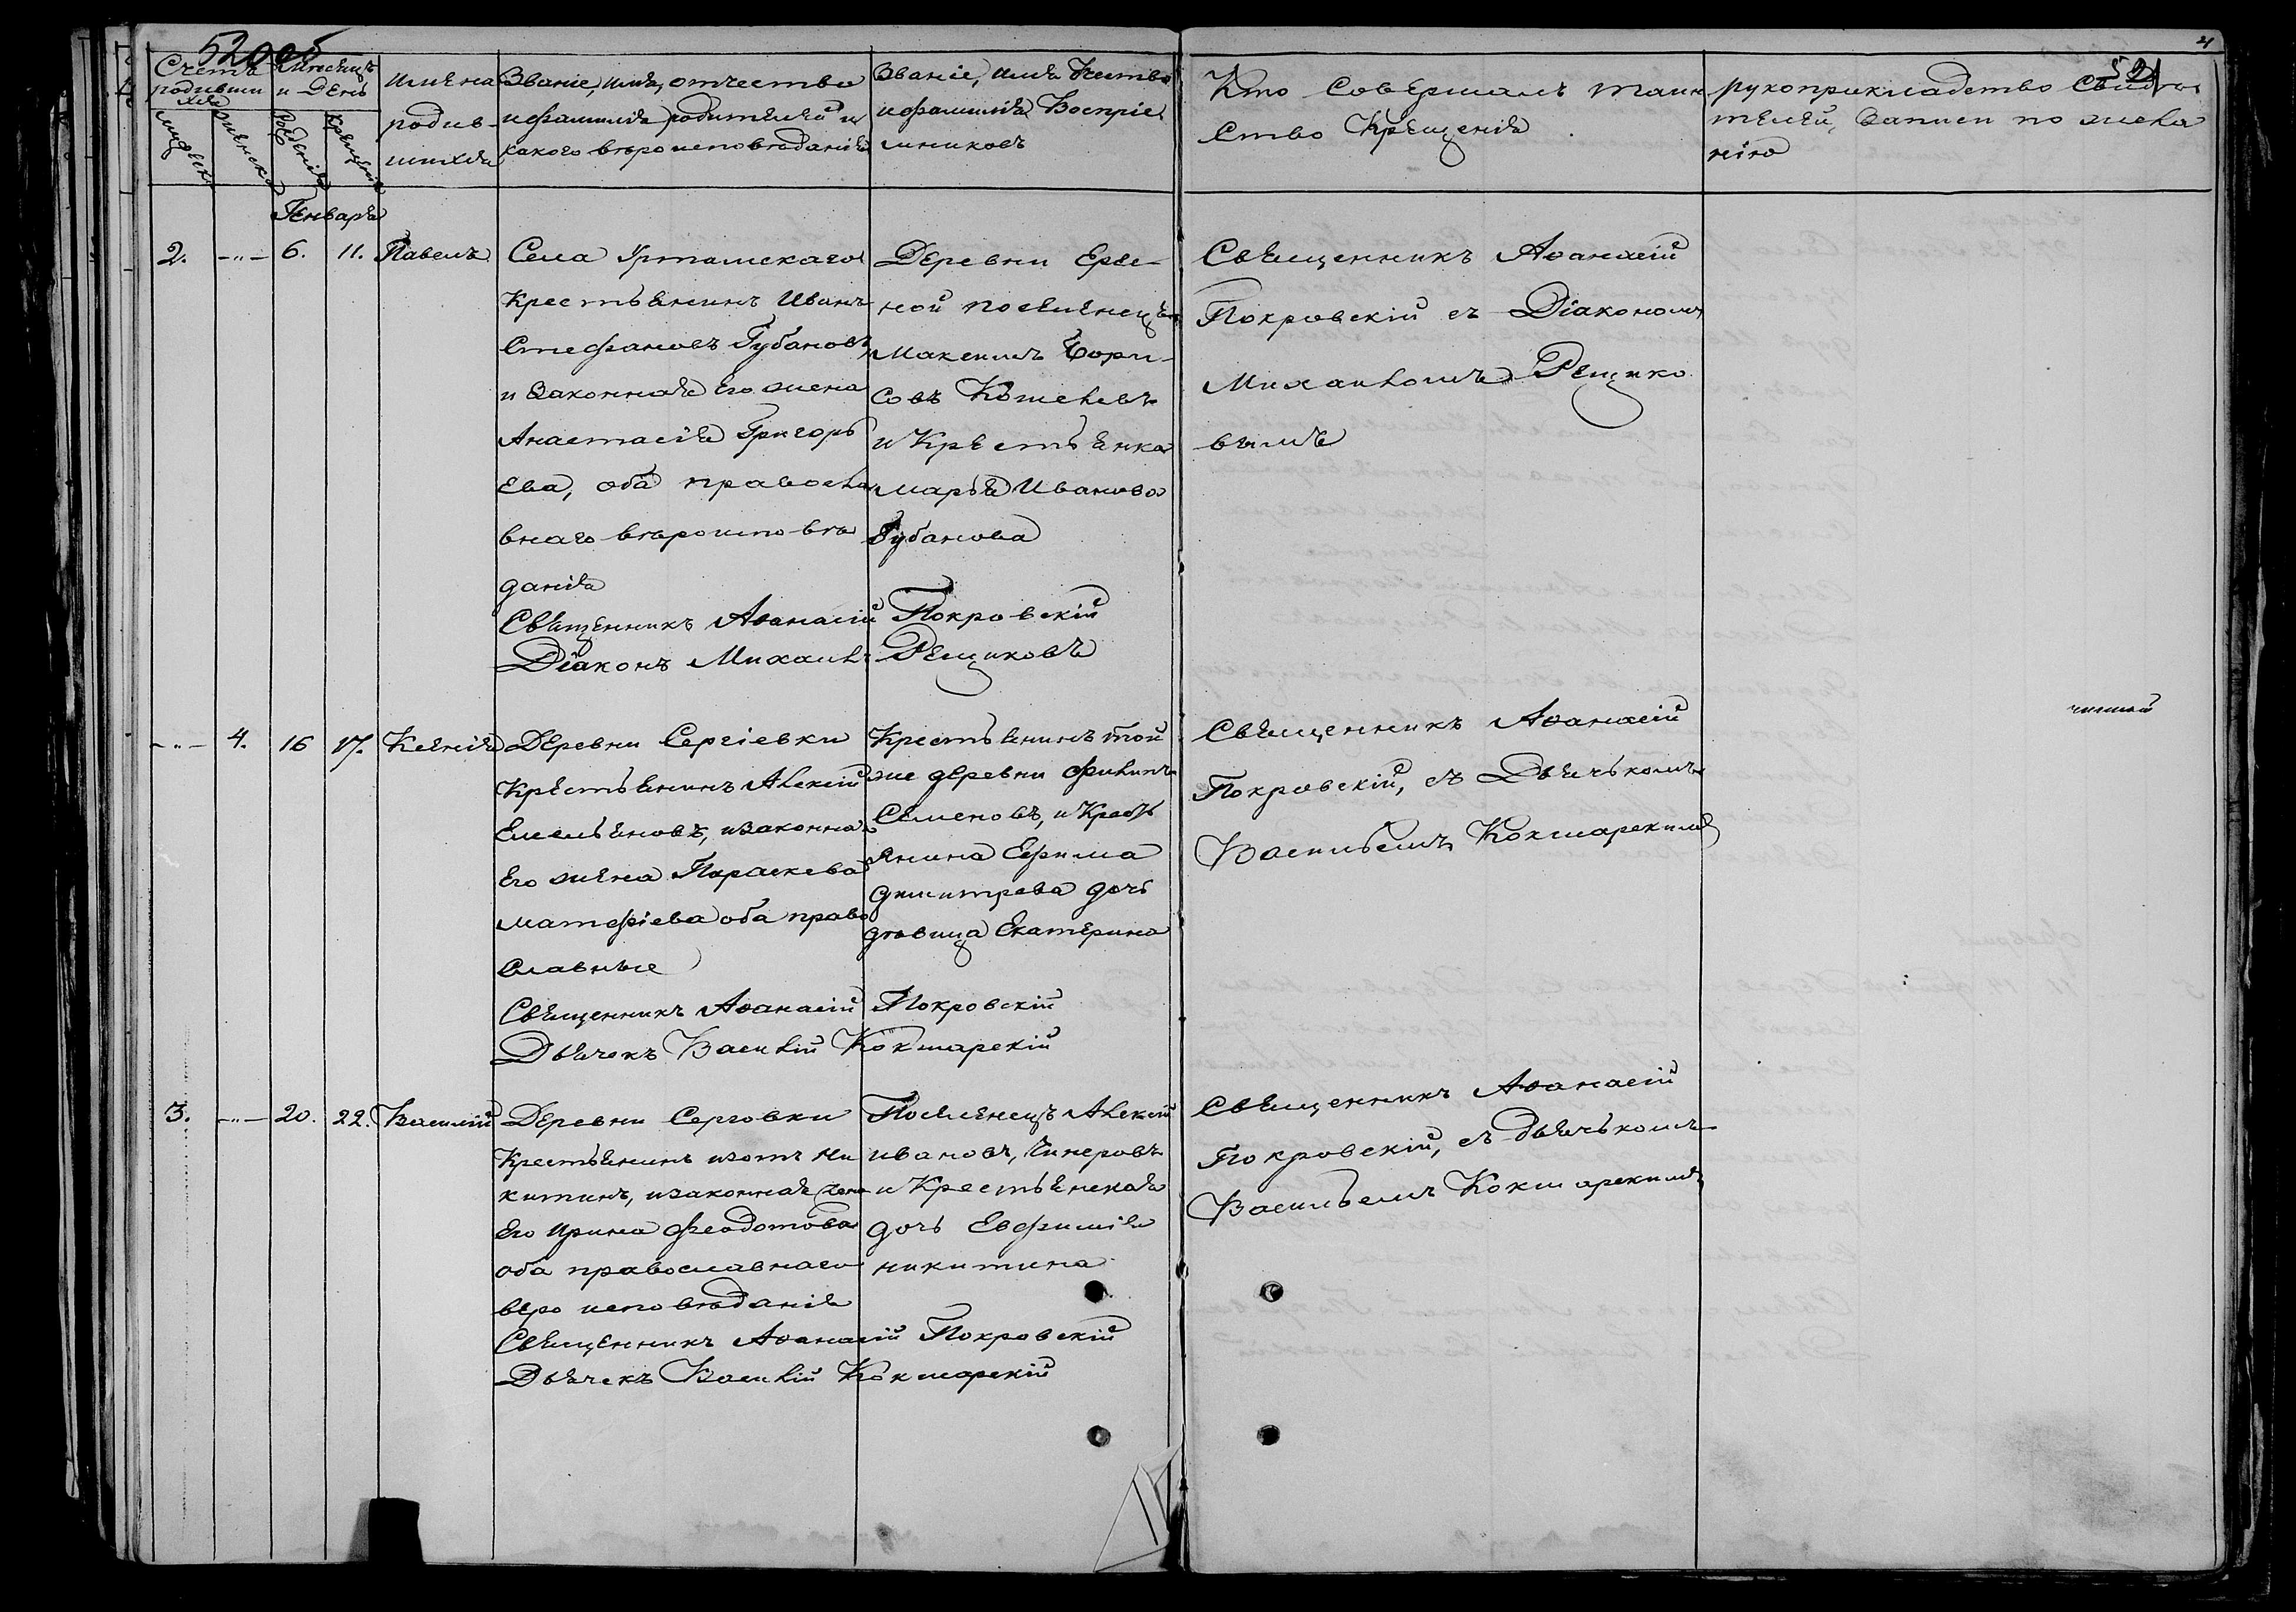 52 об
4
52
Счетъ родившихся
Мѣсяцъ и день
мужеска
женска
рожденія
крещенія
имена родив-шихся
Званіе, имя, отчество
и фамилія родителей и
какого вѣроисповѣданія
Званіе, имя отчество
и фамилія Воспріе
мниковъ
Кто Совершалъ таин
ство Крещенія
рукоприкладство Свидѣ
телей, Записи по жела
нію
Генваря
2. -"- 6. 11. Павелъ
Села Урташскаго
Крестьянинъ Иванъ
Стефановъ Губановъ,
и Законная Его жена
Анастасія Григорь
ева, оба правосла
внаго вѣроисповѣ
данія
Деревни Ерге-
ной поселенецъ
Максимъ Бори-
совъ Кошелевъ
и Крестьянка
Марья Иванова
Губанова
Священникъ Аѳанасій
Покровскій съ Діакономъ
Михаиломъ Рещико
вымъ
Священникъ Аѳанасій Покровскій
Діаконъ Михаилъ Рещиковъ
-"- 4. 16 17. Ксенія
Деревни Сергіевки
Крестьянинъ Алексій
Емельяновъ, и законна
Его жена Параскева
Матфіева оба право
славные
Крестьянинъ той
же деревни Филипъ
Семеновъ, и Кресть
янина Ефима
Дмитрева дочь
дѣвица Екатерина
Священникъ Аѳанасій
Покровскій, съ Дьячькомъ
Васильемъ Кокшарскимъ
Священникъ Аѳанасій Покровскій
Дьячекъ Василій Кокшарскій
3. -"- 20. 22. Василій
Деревни Серговки
Крестьянинъ Изотъ Ни
китинъ, и законная жена
Его Ирина Феодотова
оба православнаго
вероисповѣданія
Поселенецъ Алексій
Ивановъ, Чинеровъ
и Крестьянская
дочь Евфимія
Никитина
Священникъ Аѳанасій
Покровскій, съ дьячькомъ
Васильемъ Кокшарскимъ
Священникъ Аѳанасій Покровскій
Дьячекъ Василій Кокшарскій